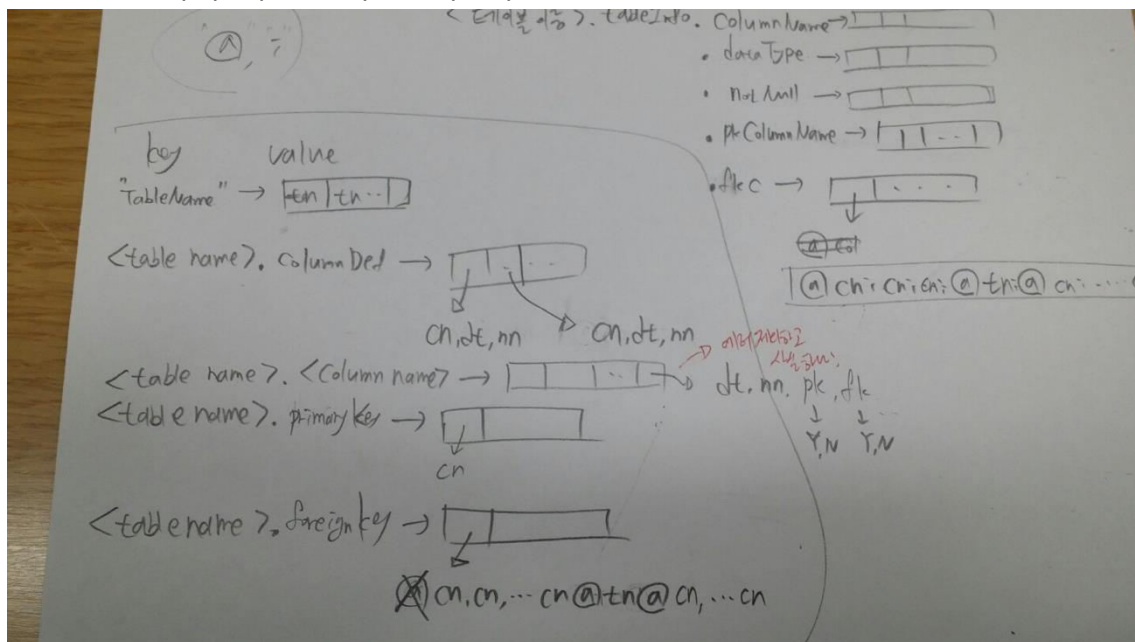 @, ;
<테이블 이름>. tableInfo. ColumnName →
• dataType →
• notNull →
• pkColumnName → ..
• fkc → ...
@ cn; cn; cn; @ tn; @ cn; ....
key value
"TableName" → tn tn..
<table name>. columnDef → ...
cn, dt, nn cn, dt, nn
<table name>. <Column name> → .. → dt, nn, pk, fk
Y,N Y,N
<table name>. primary key →
cn
<table name>. foreign key →
@ cn, cn, ... cn @ tn @ cn, ... cn